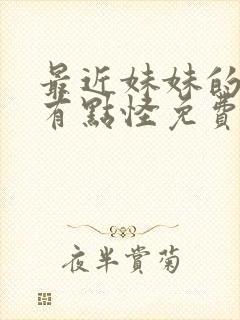 最近妹妹的
有點怪免費
夜半賞菊